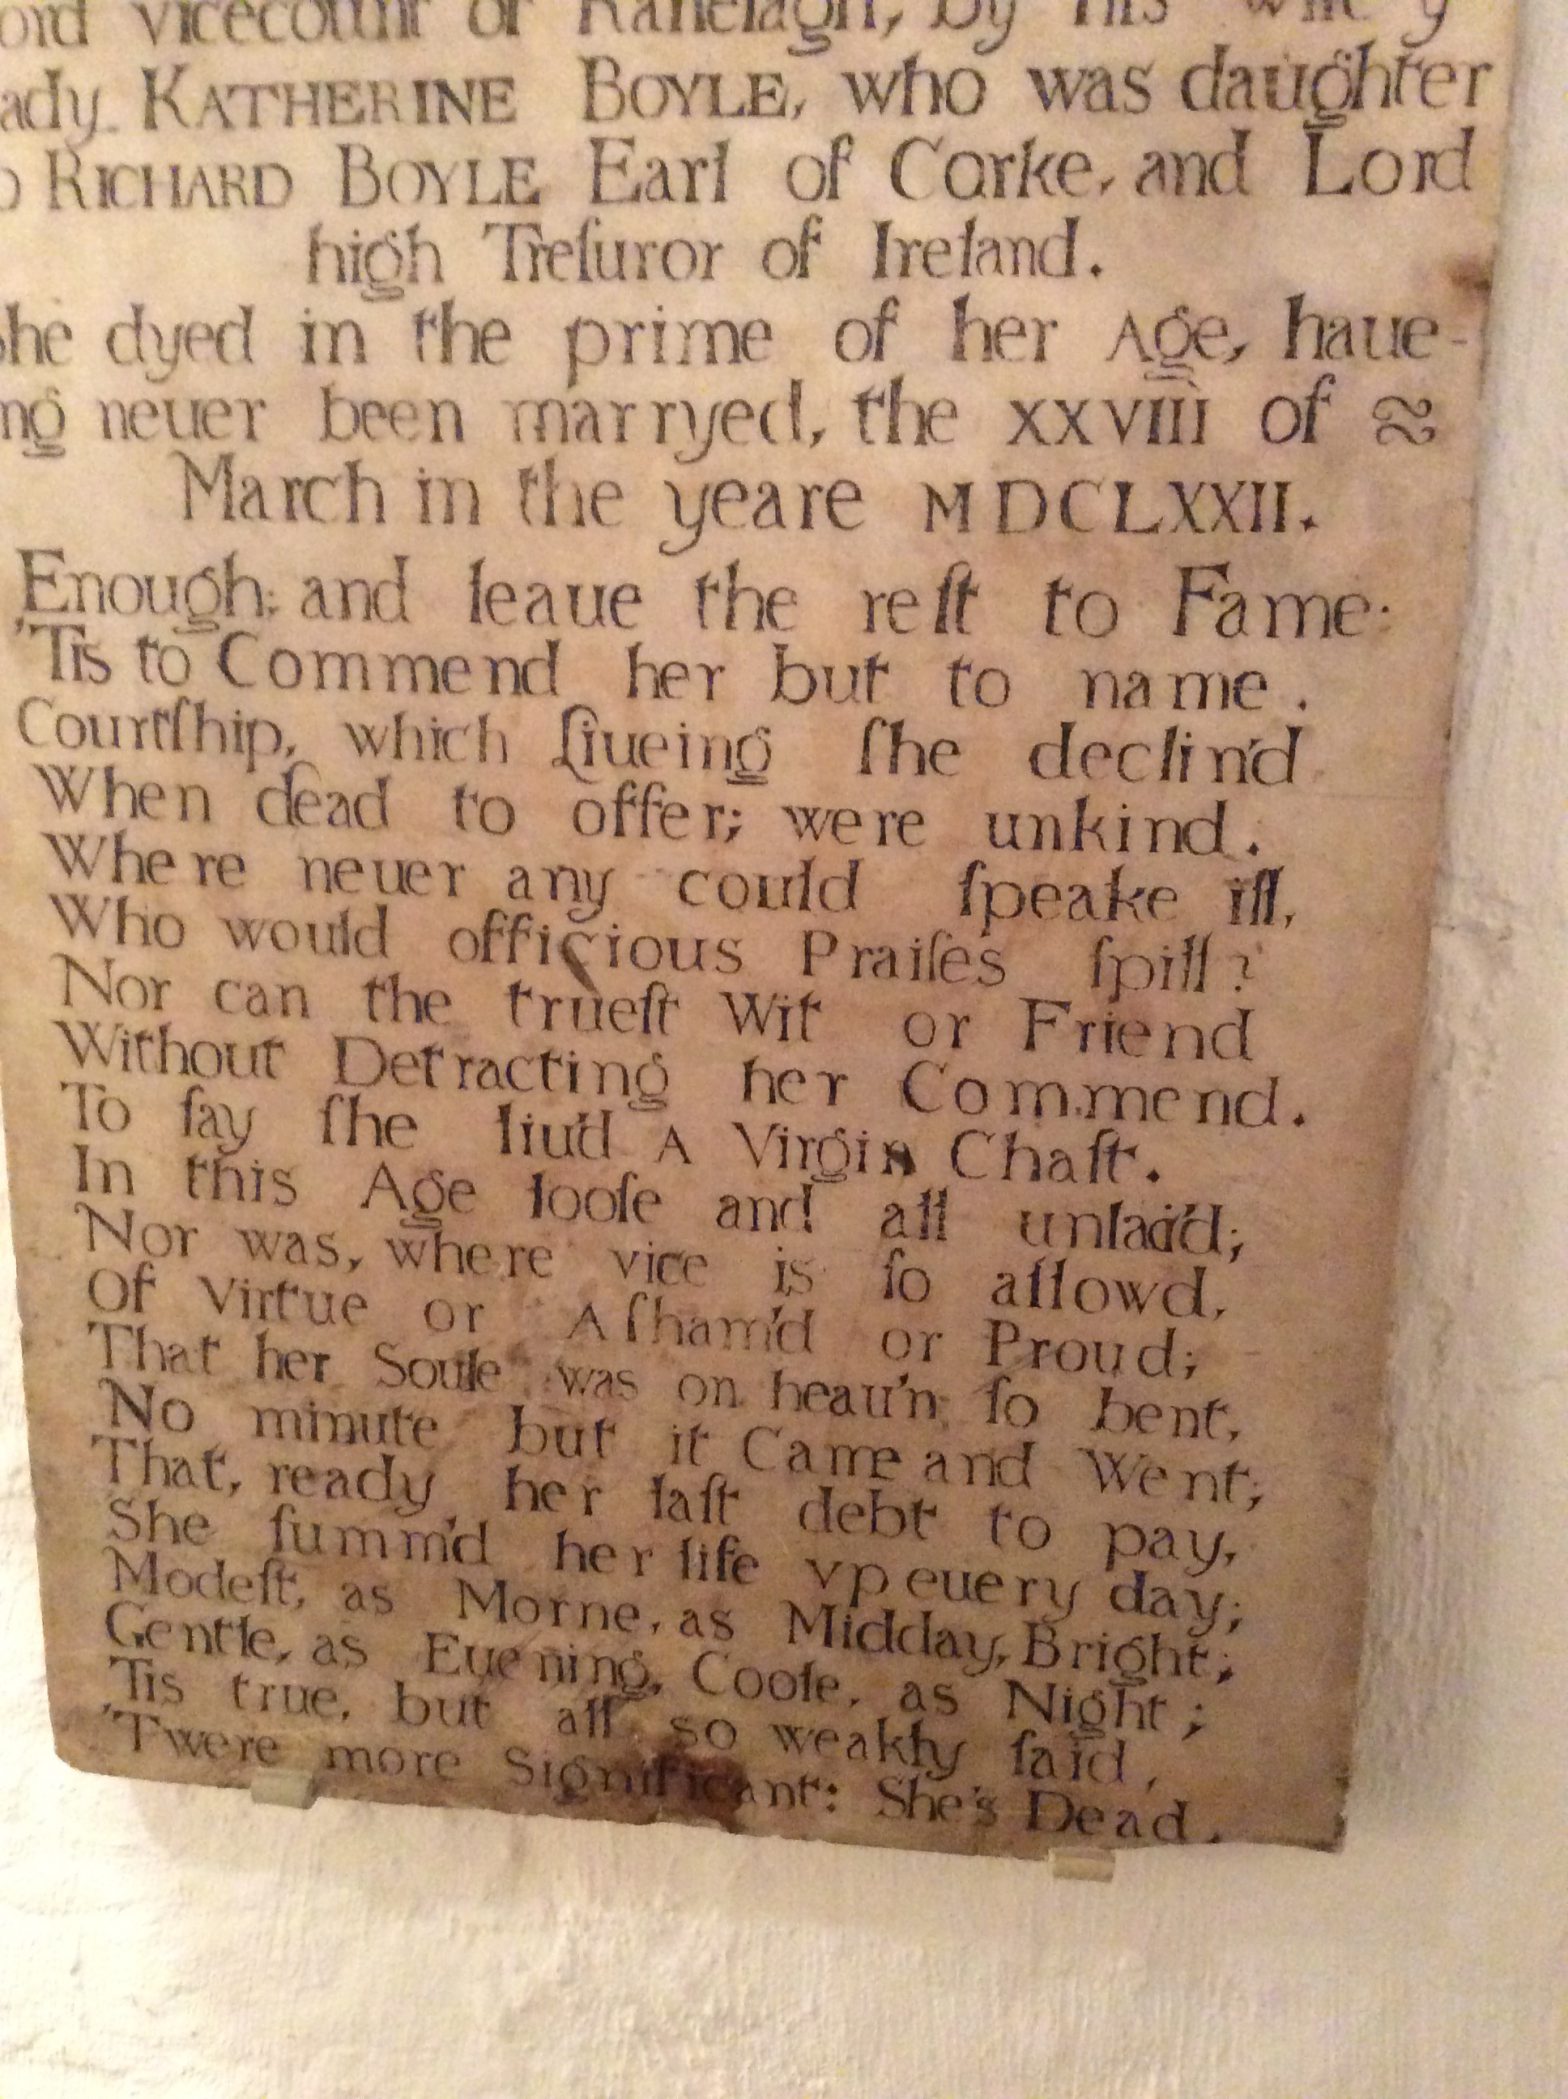 ord vicecount of Ranelagh, by his wife y
ady KATHERINE BOYLE, who was daughter
o RICHARD BOYLE Earl of Corke, and Lord
high Treſuror of Ireland.
She dyed in the prime of her Age, haue-
ng neuer been marryed, the XXVIII of
March in the yeare MDCLXXII.
Enough; and leaue the reſt to Fame.
'Tis to Commend her but to name.
Courtſhip, which Liueing ſhe declin'd
When dead to offer; were unkind.
Where neuer any could ſpeake ill,
Who would officious Praiſes ſpill?
Nor can the trueſt Wit or Friend
Without Detracting her Commend.
To ſay ſhe liu'd A Virgin Chaſt.
In this Age looſe and all unlac'd;
Nor was, where vice is ſo allowd,
Of Virtue or Aſham'd or Proud;
That her Soule was on heau'n ſo bent,
No minute but it Came and Went;
That, ready her laſt debt to pay,
She ſumm'd her life vp euery day;
Modeſt, as Morne, as Midday, Bright;
Gentle, as Euening, Coole, as Night;
'Tis true, but all so weakly ſaid,
'Twere more Significant: She's Dead.